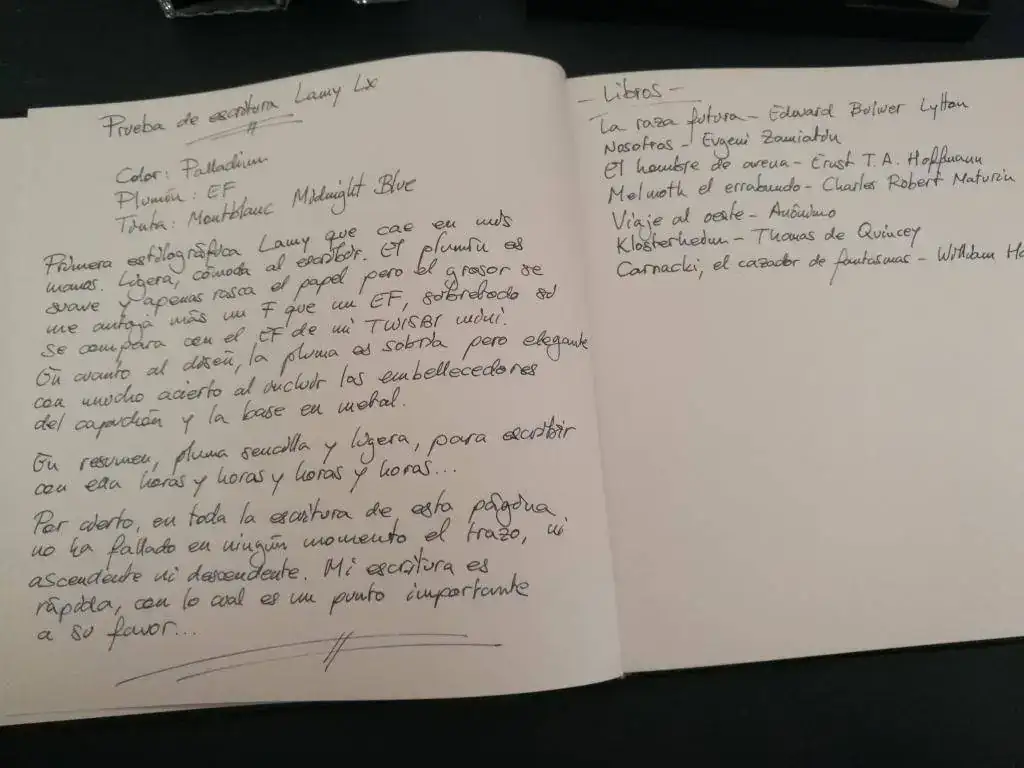 Prueba de escritura Lamy Lx
Color: Palladium
Plumín: EF
Tinta: Montblanc Midnight Blue
Primera estilográfica Lamy que cae en mis
manos. Ligera, cómoda al escribir. El plumín es
suave y apenas rasca el papel pero el grosor se
me antoja más un F que un EF, sobretodo si
se compara con el EF de mi TWISBI mini.
En cuanto al diseñ, la pluma es sobria pero elegante
con mucho acierto al incluir los embellecedores
del capuchón y la base en metal.
En resumen, pluma sencilla y ligera, para escribir
con ella horas y horas y horas y horas...
Por cierto, en toda la escritura de esta página
no ha fallado en ningún momento el trazo, ni
ascendente ni descendente. Mi escritura es
rápida, con lo cual es un punto importante
a su favor...
- Libros -
La raza futura - Edward Bulwer Lytton
Nosotros - Evgeni Zamiatin
El hombre de arena - Ernst T.A. Hoffmann
Melmoth el errabundo - Charles Robert Maturin
Viaje al oeste - Anónimo
Klosterheim - Thomas de Quincey
Carnacki, el cazador de fantasmas - William Ho